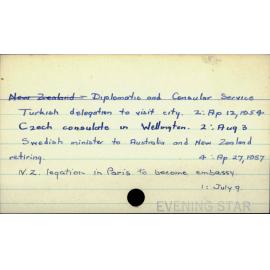 New Zealand - Diplomatic and Consular Service
Turkish delegation to visit city. 2: Ap 12, 1954
Czech consulate in Wellington. 2: Aug 3
Swedish minister to Australia and New Zealand
retiring. 4: Ap 27, 1957
N.Z. legation in Paris to become embassy.
1: July 9.
EVENING STAR